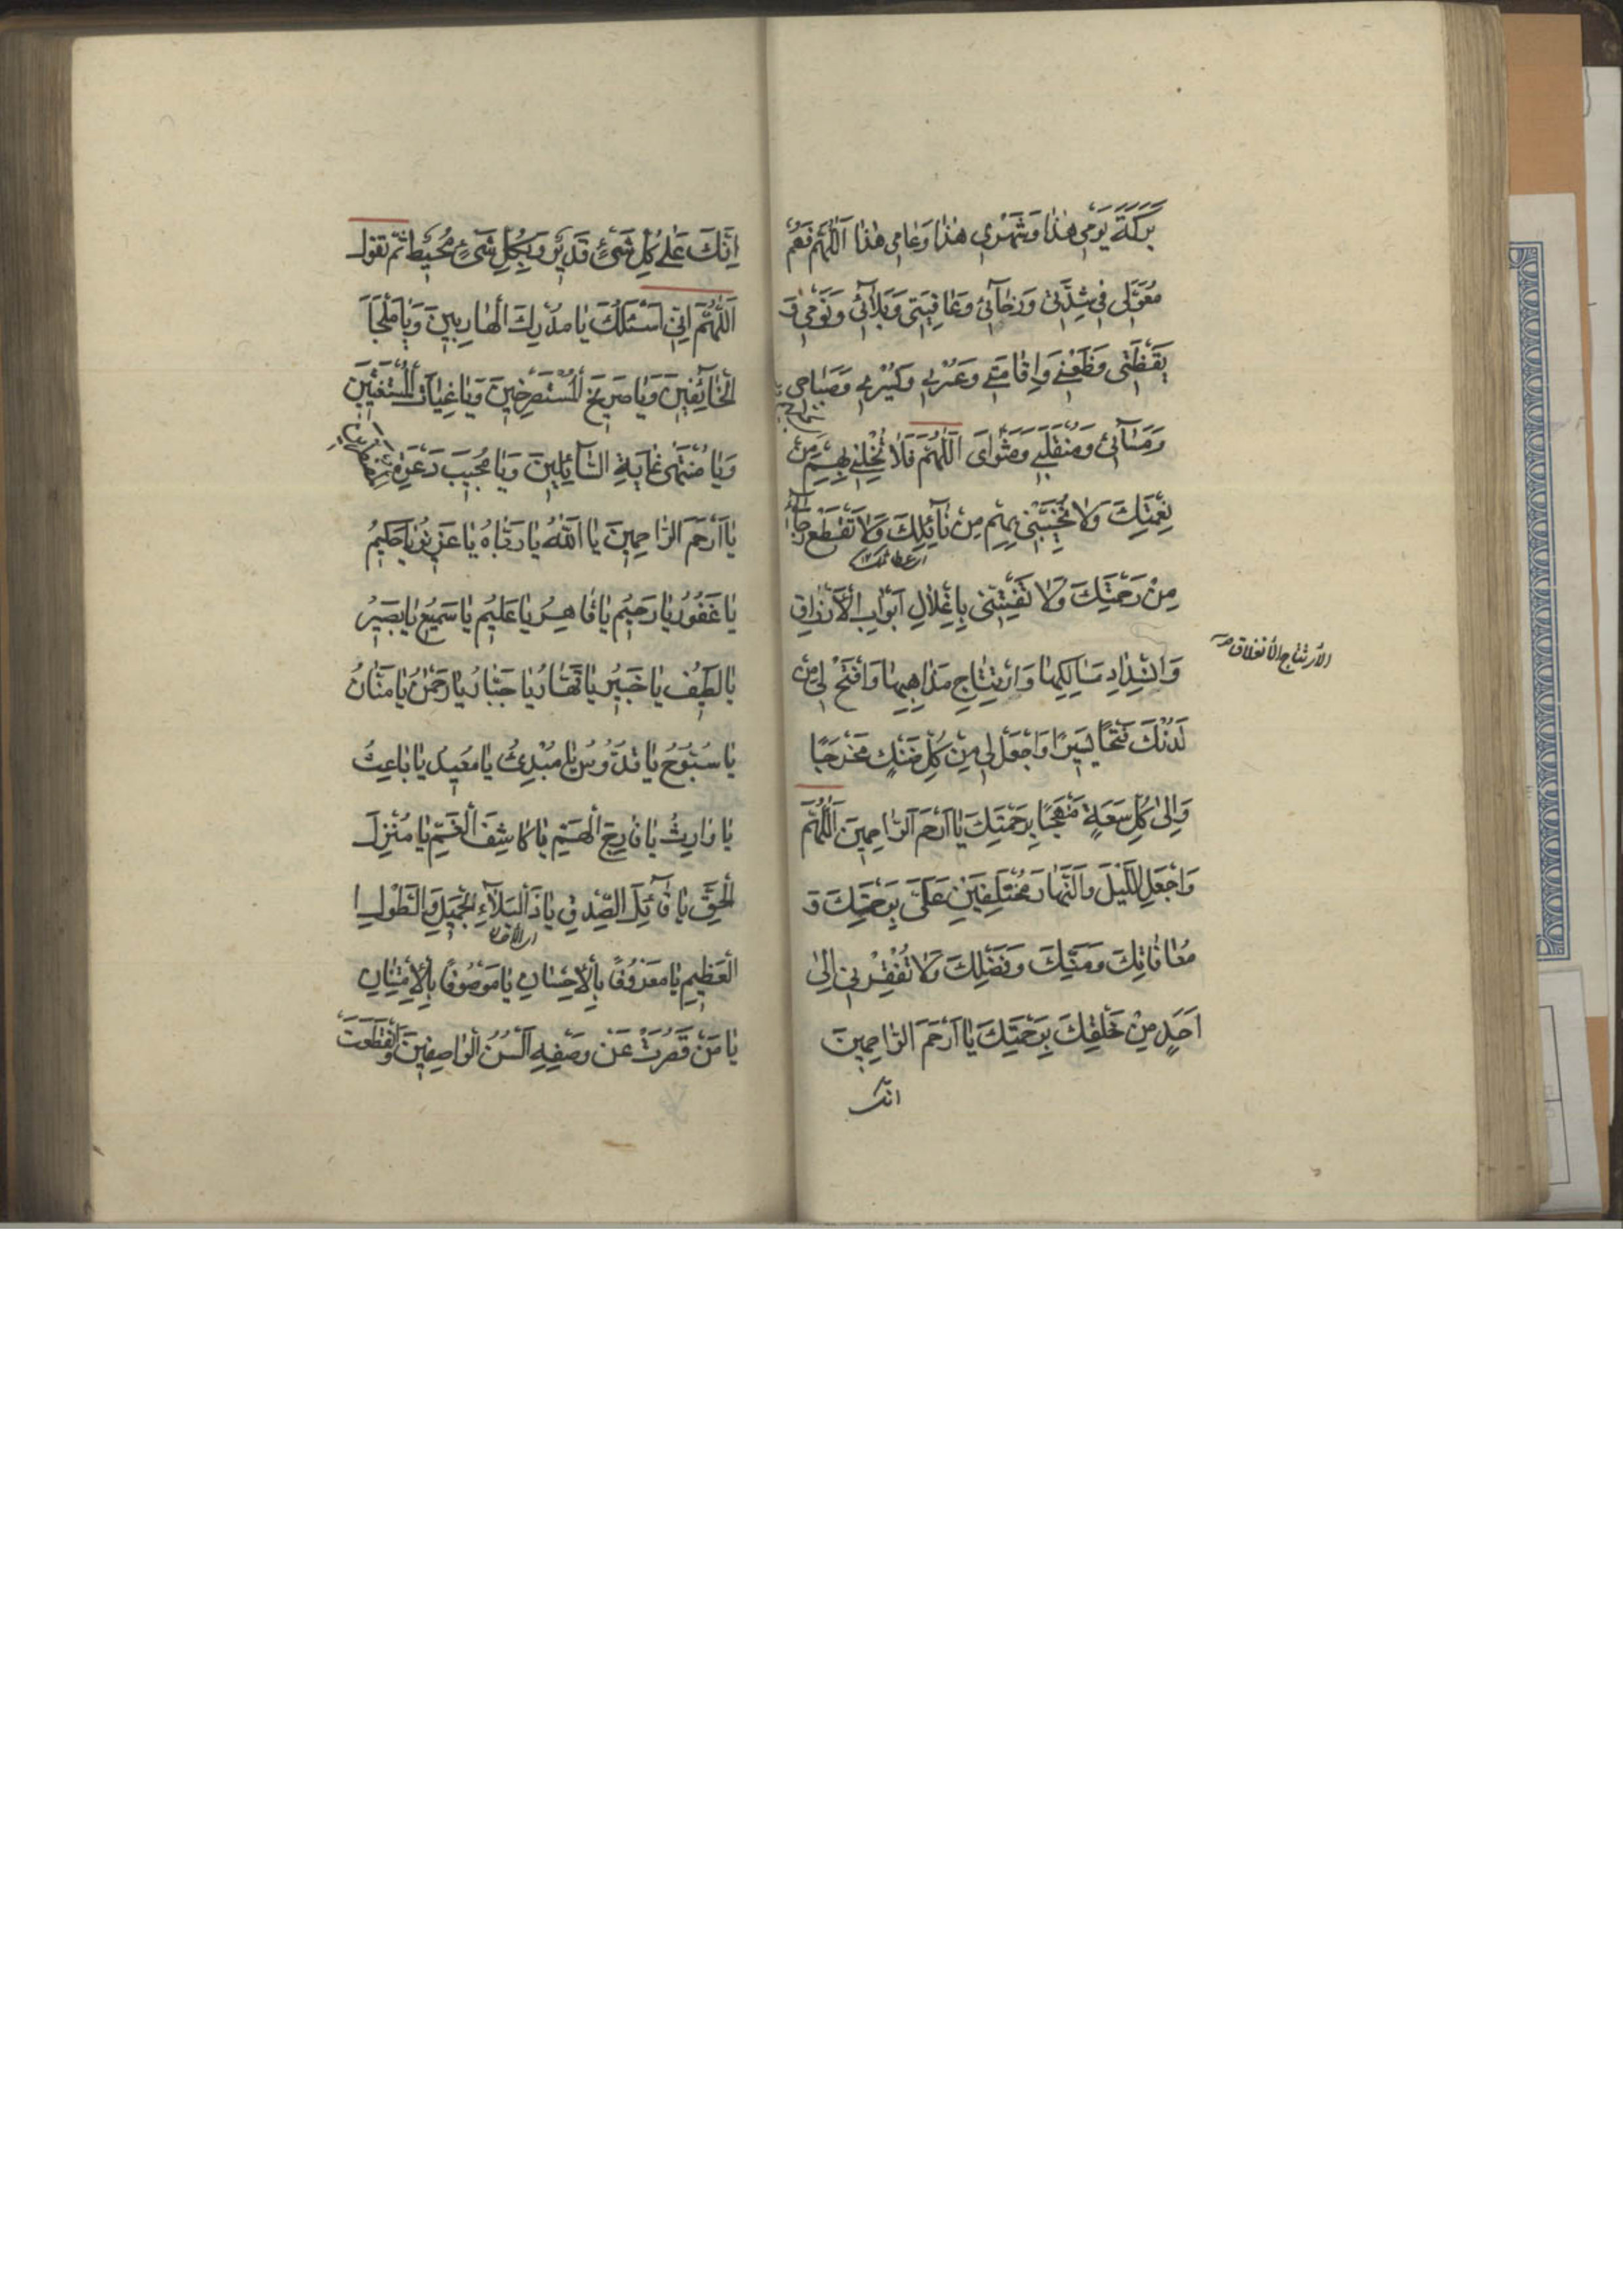 بَرَكَةَ يَوْمِي هٰذَا وَشَهْرِي هٰذَا وَعَامِي هٰذَا اَللّٰهُمَّ فَهُمْ
مُعَوَّلِي فِي شِدَّتِي وَرَخَآئِي وَعَافِيَتِي وَبَلَآئِي وَنَوْمِي وَ
يَقَظَتِي وَظَعْنِي وَاِقَامَتِي وَعُسْرِي وَيُسْرِي وَصَبَاحِي
وَمَسَآئِي وَمُنْقَلَبِي وَمَثْوَايَ اَللّٰهُمَّ فَلَا تُخْلِنِي بِهِمْ مِنْ
نِعْمَتِكَ وَلَا تُخَيِّبْنِي بِهِمْ مِنْ نَآئِلِكَ وَلَا تَقْطَعْ رَجَآئِي
اى عطائك
مِنْ رَحْمَتِكَ وَلَا تَفْتِنِّي بِاِغْلَاقِ اَبْوَابِ الْاَرْزَاقِ
الارتتاج الأنغلاق
وَانْسِدَادِ مَسَالِكِهَا وَارْتِتَاجِ مَذَاهِبِهَا وَافْتَحْ لِي مِنْ
لَدُنْكَ فَتْحًا يَسِيرًا وَاجْعَلْ لِي مِنْ كُلِّ ضَنْكٍ مَخْرَجًا
وَاِلٰى كُلِّ سَعَةٍ مَنْهَجًا بِرَحْمَتِكَ يَا اَرْحَمَ الرَّاحِمِينَ اَللّٰهُمَّ
وَاجْعَلِ اللَّيْلَ وَالنَّهَارَ مُخْتَلِفَيْنِ عَلَيَّ بِرَحْمَتِكَ وَ
مُعَافَاتِكَ وَمَنِّكَ وَفَضْلِكَ وَلَا تُفْقِرْنِي اِلٰى
اَحَدٍ مِنْ خَلْقِكَ بِرَحْمَتِكَ يَا اَرْحَمَ الرَّاحِمِينَ
انك
اِنَّكَ عَلٰى كُلِّ شَيْءٍ قَدِيرٌ وَبِكُلِّ شَيْءٍ مُحِيطٌ ثم تقول
اَللّٰهُمَّ اِنِّي اَسْئَلُكَ يَا مُدْرِكَ الْهَارِبِينَ وَيَا مَلْجَاَ
الْخَآئِفِينَ وَيَا صَرِيخَ الْمُسْتَصْرِخِينَ وَيَا غِيَاثَ الْمُسْتَغِيثِينَ
وَيَا مُنْتَهٰى غَايَةِ السَّآئِلِينَ وَيَا مُجِيبَ دَعْوَةِ الْمُضْطَرِّينَ
يَا اَرْحَمَ الرَّاحِمِينَ يَا اَللّٰهُ يَا رَبَّاهُ يَا عَزِيزُ يَا حَكِيمُ
يَا غَفُورُ يَا رَحِيمُ يَا قَاهِرُ يَا عَلِيمُ يَا سَمِيعُ يَا بَصِيرُ
يَا لَطِيفُ يَا خَبِيرُ يَا قَهَّارُ يَا جَبَّارُ يَا رَحْمٰنُ يَا مَنَّانُ
يَا سُبُّوحُ يَا قُدُّوسُ يَا مُبْدِئُ يَا مُعِيدُ يَا بَاعِثُ
يَا وَارِثُ يَا فَارِجَ الْهَمِّ يَا كَاشِفَ الْغَمِّ يَا مُنْزِلَ
الْحَقِّ يَا قَآئِلَ الصِّدْقِ يَا ذَا الْبَلَآءِ الْجَمِيلِ وَالطَّوْلِ ا
الْعَظِيمِ يَا مَعْرُوفًا بِالْاِحْسَانِ يَا مَوْصُوفًا بِالْاِمْتِنَانِ
يَا مَنْ قَصُرَتْ عَنْ وَصْفِهِ اَلْسُنُ الْوَاصِفِينَ وَانْقَطَعَتْ